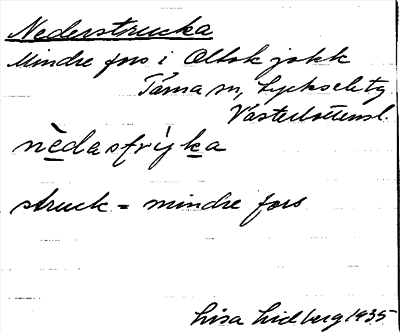 Nederstrucka
Mindre fors i Oltok jokk
Tärna sn, Lycksele tg
Västerbottensl.
nèdasfrỳka
struck = mindre fors
Lisa Lidberg 1935